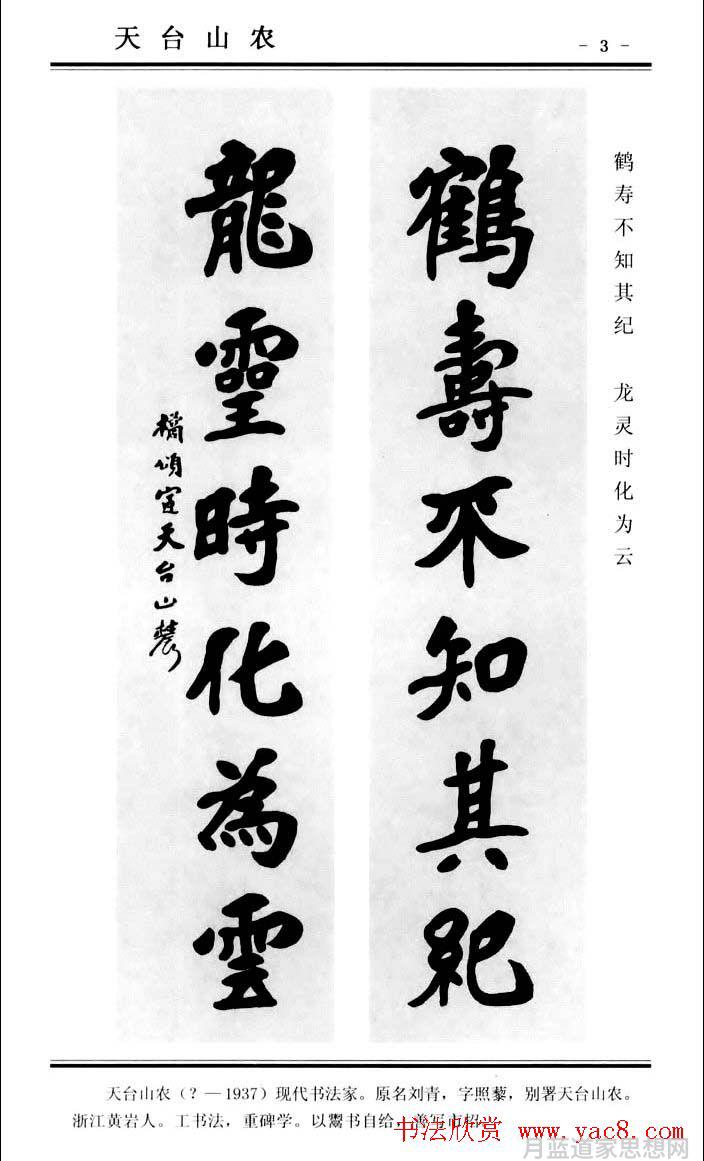 天台山农
- 3 -
鹤寿不知其纪 龙灵时化为云
鶴壽不知其紀
龍靈時化為雲
橘頌室天台山農
天台山农（?—1937）现代书法家。原名刘青，字照藜，别署天台山农。
浙江黄岩人。工书法，重碑学。以鬻书自给，善写市招。
书法欣赏 www.yac8.com
月蓝道家思想网